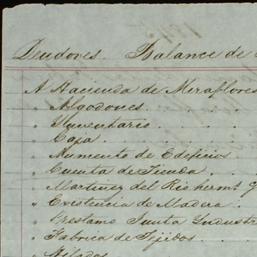 Deudores. Balance de
A Hacienda de Miraflores
" Algodones.
" Inventario.
" Caja
" Aumento de Edificios
" Cuenta de Tienda
" Martinez del Rio herms
" Existencia de Madera
" Prestamo Junta Industr
" Fabrica de Tejidos
" Hilados